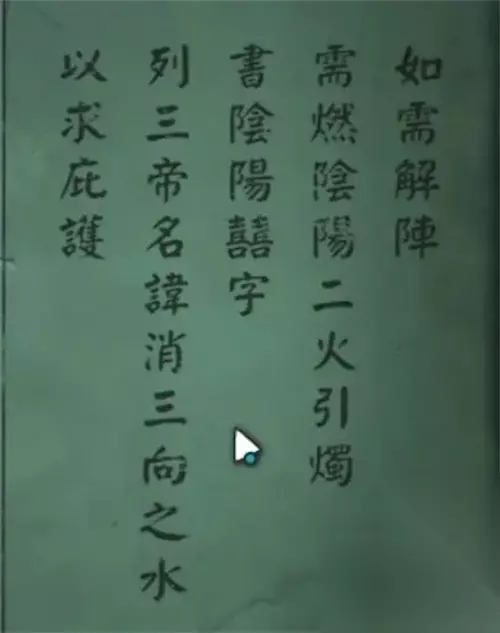 如需解陣
需燃陰陽二火引燭
書陰陽囍字
列三帝名諱消三向之水
以求庇護